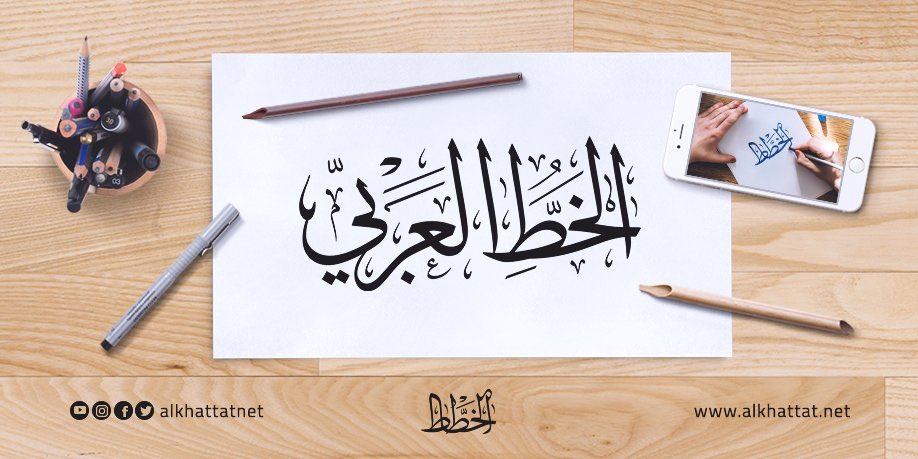 الخطِّ العربيّ
الخطَّاط
alkhattatnet
الخطَّاط
www.alkhattat.net